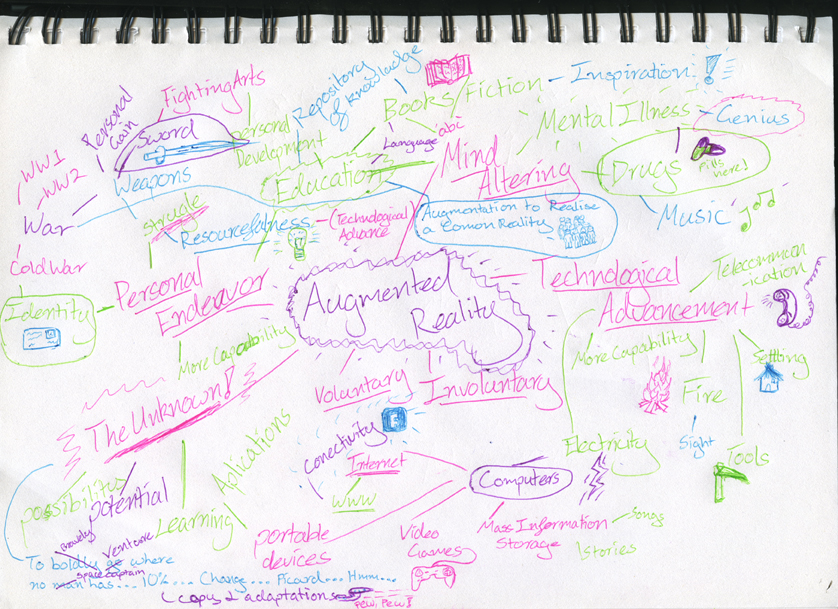 Fighting Arts
Personal
Gain
Sword
WW1
WW2
War
Weapons
Cold War
Personal
Development
Repository
of Knowledge
Books/Fiction
Inspiration!
Language
abc
Education
Mind
Altering
Mental Illness
Genius
Drugs
Pills
Here!
Music
Struggle
Resourcefulness
(Technological
Advance
Augmentation to Realise
a Common Reality
Personal
Endeavor
Identity
More Capability
Augmented
Reality
Technological
Advancement
Telecommun
-ication
More Capability
Fire
Settling
Sight
Tools
Electricity
Voluntary
Involuntary
The Unknown!
possibilities
potential
Learning
Aplications
Conectivity
f
Internet
WWW
Computers
portable
devices
Video
Games
Mass Information
Storage
Songs
Stories
Bravely
Venture
To boldly go where
Space captain
no man has... 10%... Change... Picard... Hmm...
(copy & adaptations
Pew, Pew!